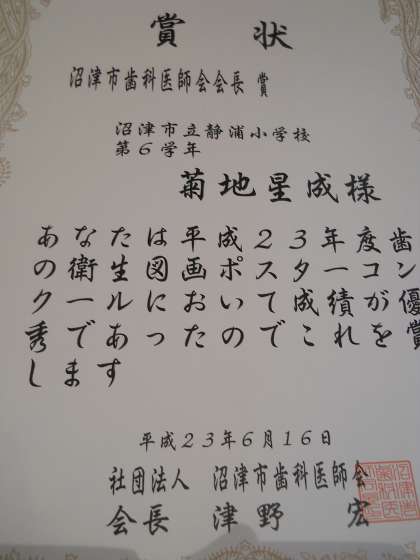 賞状
沼津市歯科医師会会長 賞
沼津市立静浦小学校
第6学年
菊地星成様
あなたは平成23年度歯
の衛生図画ポスターコン
クールにおいて成績が優
秀であったのでこれを賞
します
平成23年6月16日
社団法人 沼津市歯科医師会
会長 津野 宏